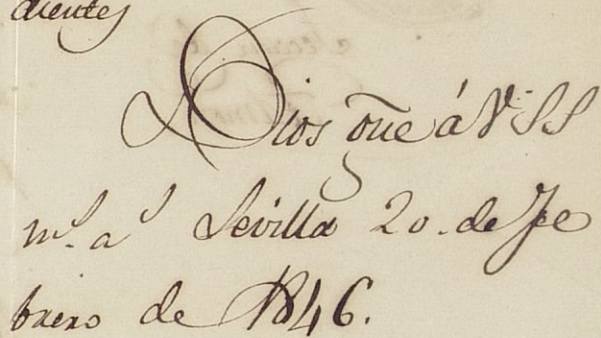 dientes
Dios gue á V. SS
ms. as. Sevilla 20. de Fe
brero de 1846.